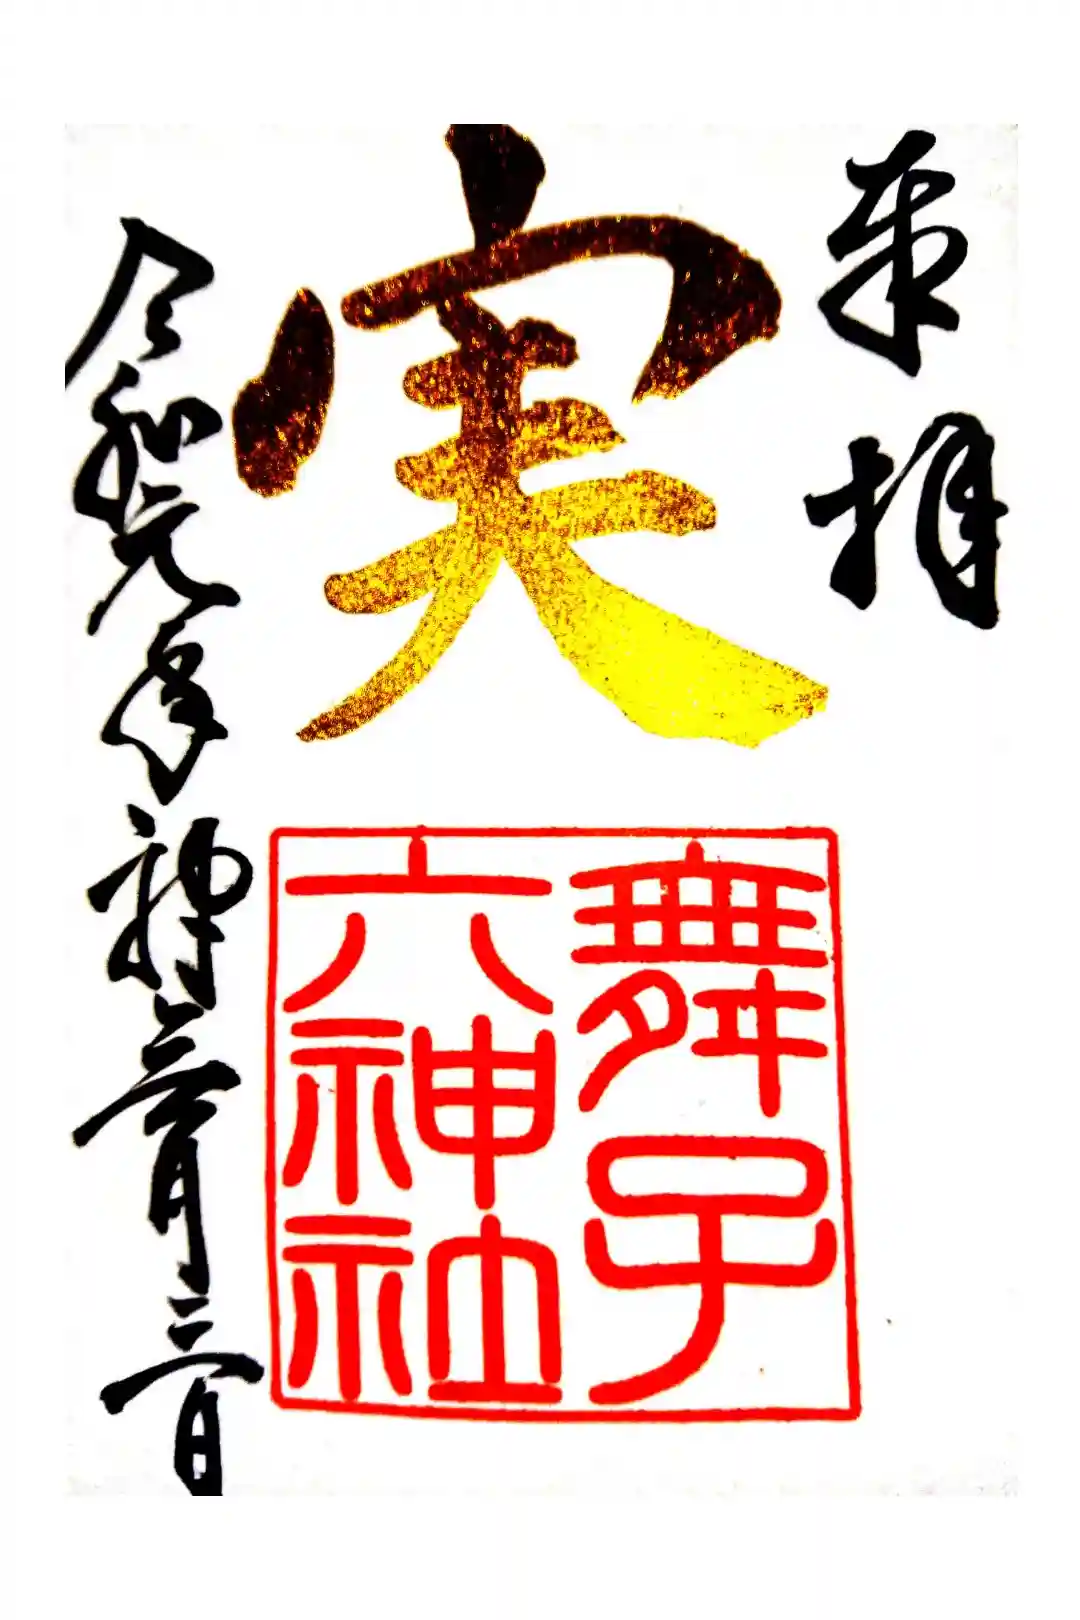 奉拝
実
舞子
六神社
令和元年神無月三日